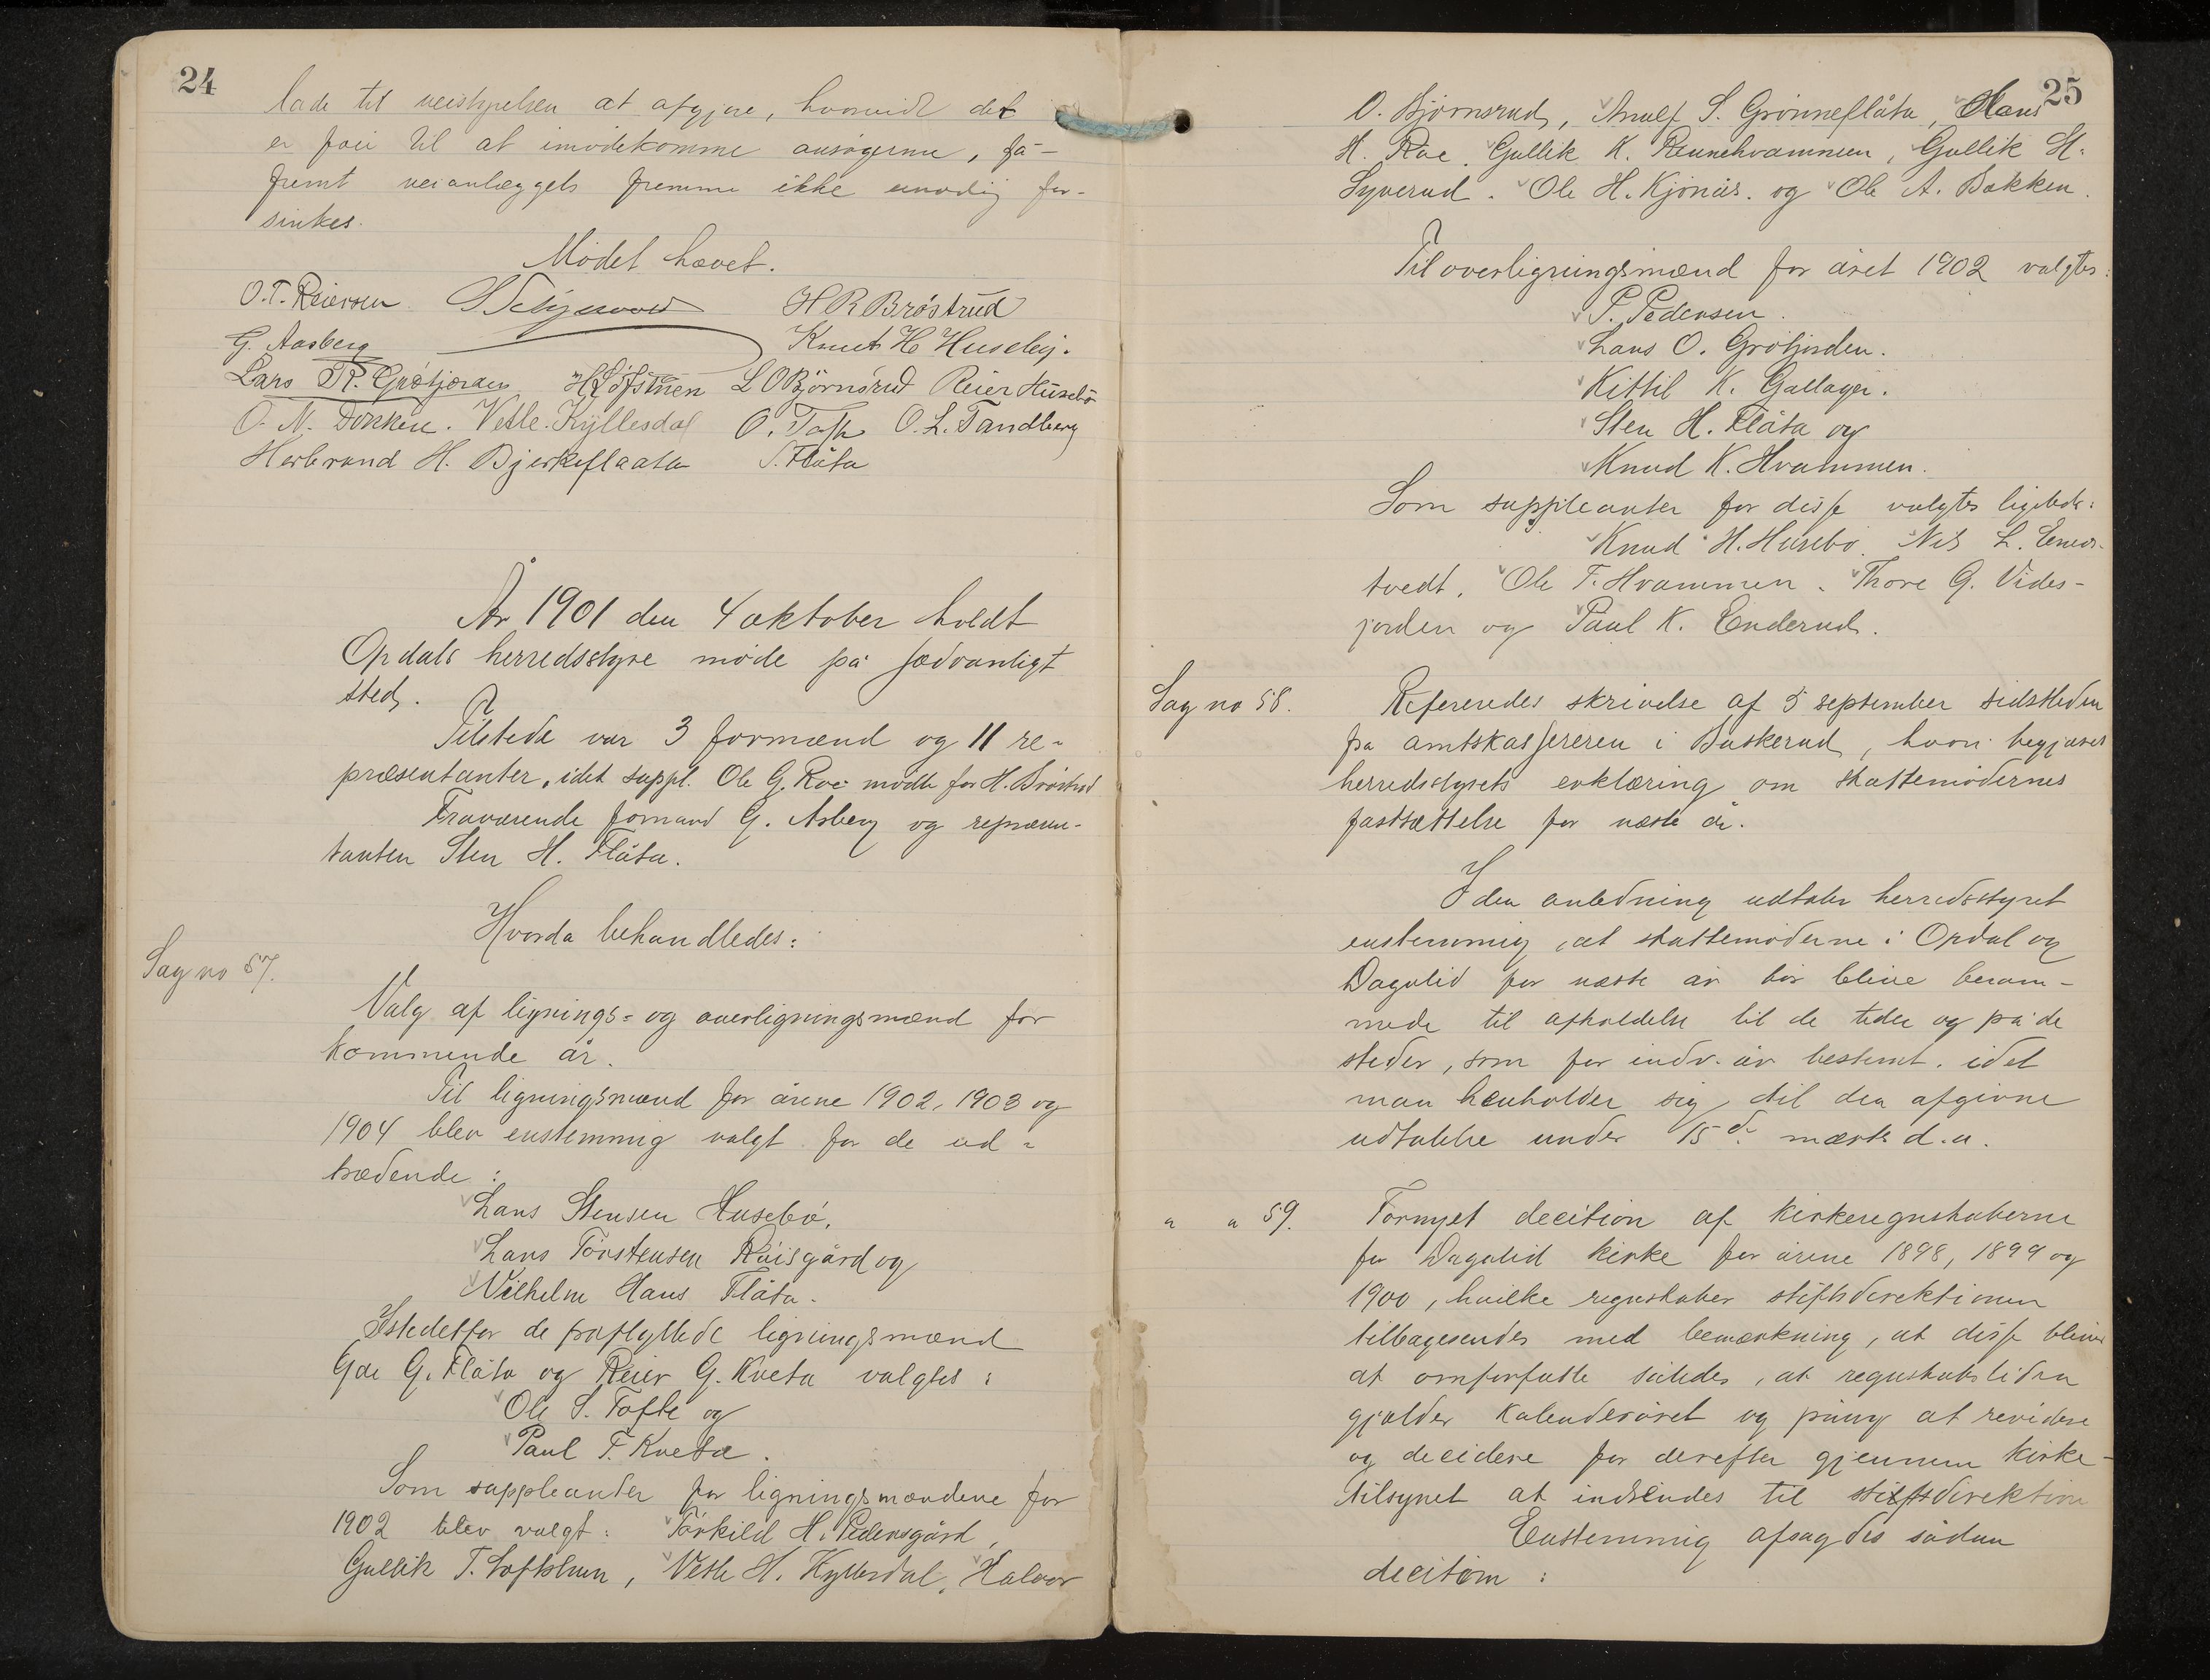 24
lade til veistyrelsen at afgjøre, hvorvidt det
er føie til at imødekomme ansøgerne, så-
fremt veianlæggets fremme ikke unødig for-
sinkes.
Mødet hævet.
O.T. Reiersen H R Brøstrud
G. Aasberg Knut H Huseby.
Lars R. Grøtjorden H Loftstuen L O Bjørnsrud Reier Husebø
O. N. Dokken. Vetle Kyllesdal O. Toft O. L. Tandberg
Herbrand H. Bjerkeflaata S. Flåta
År 1901 den 4 oktober holdt
Opdals herredsstyre møde på sædvanligt
sted.
Tilstede var 3 formænd og 11 re-
præsentanter, idet suppl. Ole G. Roe mødte for H. Brøstrud
Fraværende formand G. Asberg og repræsen-
tanten Sten H. Flåta.
Hvorda behandledes:
Sag no 57.
Valg af lignings- og overligningsmænd for
kommende år.
Til ligningsmænd for årene 1902, 1903 og
1904 blev enstemmig valgt for de ud-
trædende:
Lars Stensen Husebø,
Lars Torstensen Råisgård og
Vilhelm Hans Flåta.
Istedetfor de fraflyttede ligningsmænd
Gde G. Flåta og Reier G. Kveta valgtes:
Ole S. Tofte og
Paul T. Kveta.
Som suppleanter for ligningsmændene for
1902 blev valgt: Torkild H. Pedersgård,
Gullik T. Loftstuen, Vetle H. Kyllesdal, Halvor
25
O. Bjørnsrud, Arnulf S. Grønneflåta, Hans
H. Roe, Gullik K. Rennehvammen, Gullik H.
Syverud. Ole H. Kjønås. og Ole A. Bakken.
Til overligningsmænd for året 1902 valgtes:
P. Pedersen.
Lars O. Grøtjorden.
Kittil K. Gallager.
Sten H. Flåta og
Knud K. Hvammen.
Som suppleanter for disse valgtes ligeledes:
Knud H. Husebø. Nils L. Eners-
tvedt. Ole T. Hvammen. Thore G. Vides-
jorden og Paul K. Enderud.
Sag no 58. Refereredes skrivelse af 5 september sidstleden
fra amtskassereren i Buskerud, hvori begjæres
herredsstyrets erklæring om skattemødernes
fastsættelse for næste år.
I den anledning udtaler herredsstyret
enstemmig, at skattemøderne i Opdal og
Dagalid for næste år bør blive beram-
mede til afholdelse til de tider og på de
steder, som for indv. år bestemt. idet
man henholder sig til den afgivne
udtalelse under 15de marts d.a.
" " 59. Fornyet decition af kirkeregnskaberne
for Dagalid kirke for årene 1898, 1899 og
1900, hvilke regnskaber stiftsdirektionen
tilbagesendes med bemærkning, at disse bliver
at omforfatte således, at regnskabstiden
gjælder kalenderåret og påny at revidere
og decidere for derefter gjennem kirke-
tilsynet at indsendes til stiftsdirektion
Enstemmig afsagdes sådan
decition: